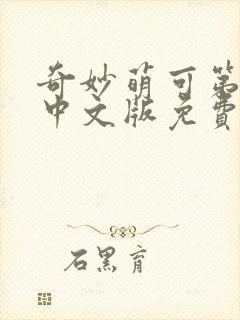 奇妙萌可第
中文版免费
石黑育